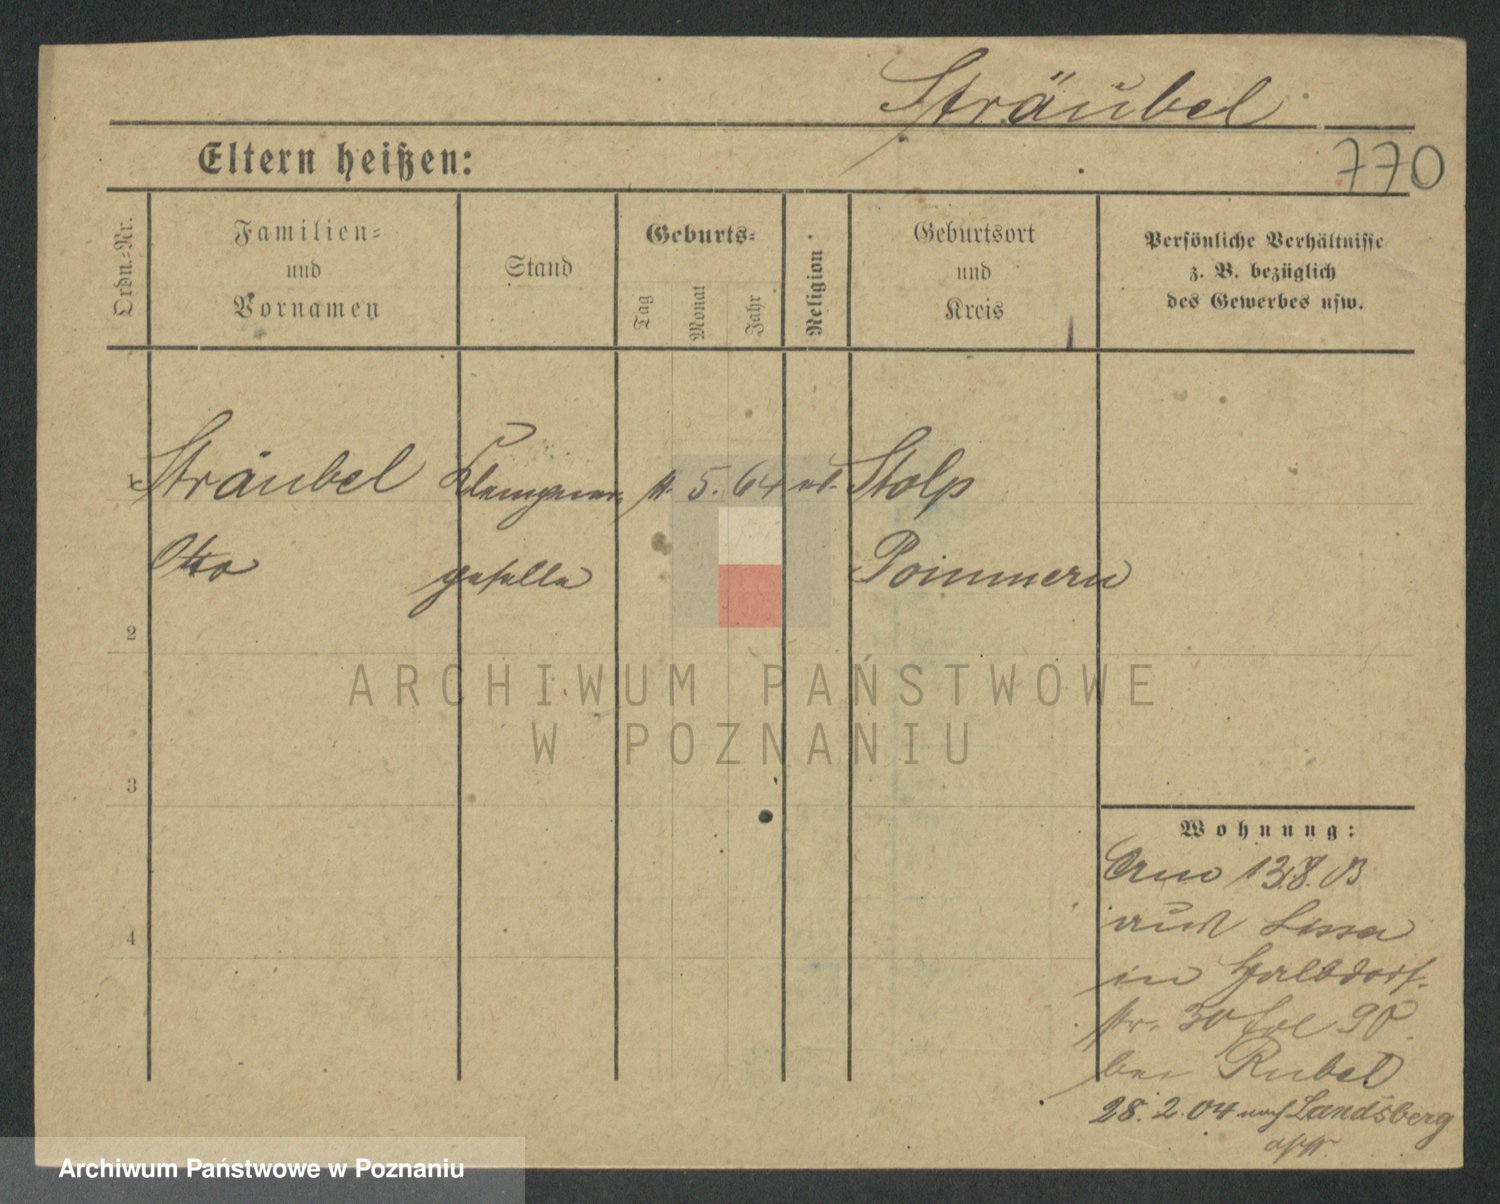 Sträubel
Eltern heißen:
770
Ordn.-Nr.
Familien-
und
Vornamen
Stand
Geburts-
Tag
Monat
Jahr
Religion
Geburtsort
und
Kreis
Persönliche Verhältnisse
z. B. bezüglich
des Gewerbes usw.
Sträubel Klempner- 5. 64 ev. Stolp
Otto geselle Pommern
2
3
4
Wohnung:
13.8.03
aus Lissa
in Halbdorf-
str. 30 90
bei Rubel
28.2.04 nach Landsberg
ARCHIWUM PAŃSTWOWE
W POZNANIU
Archiwum Państwowe w Poznaniu